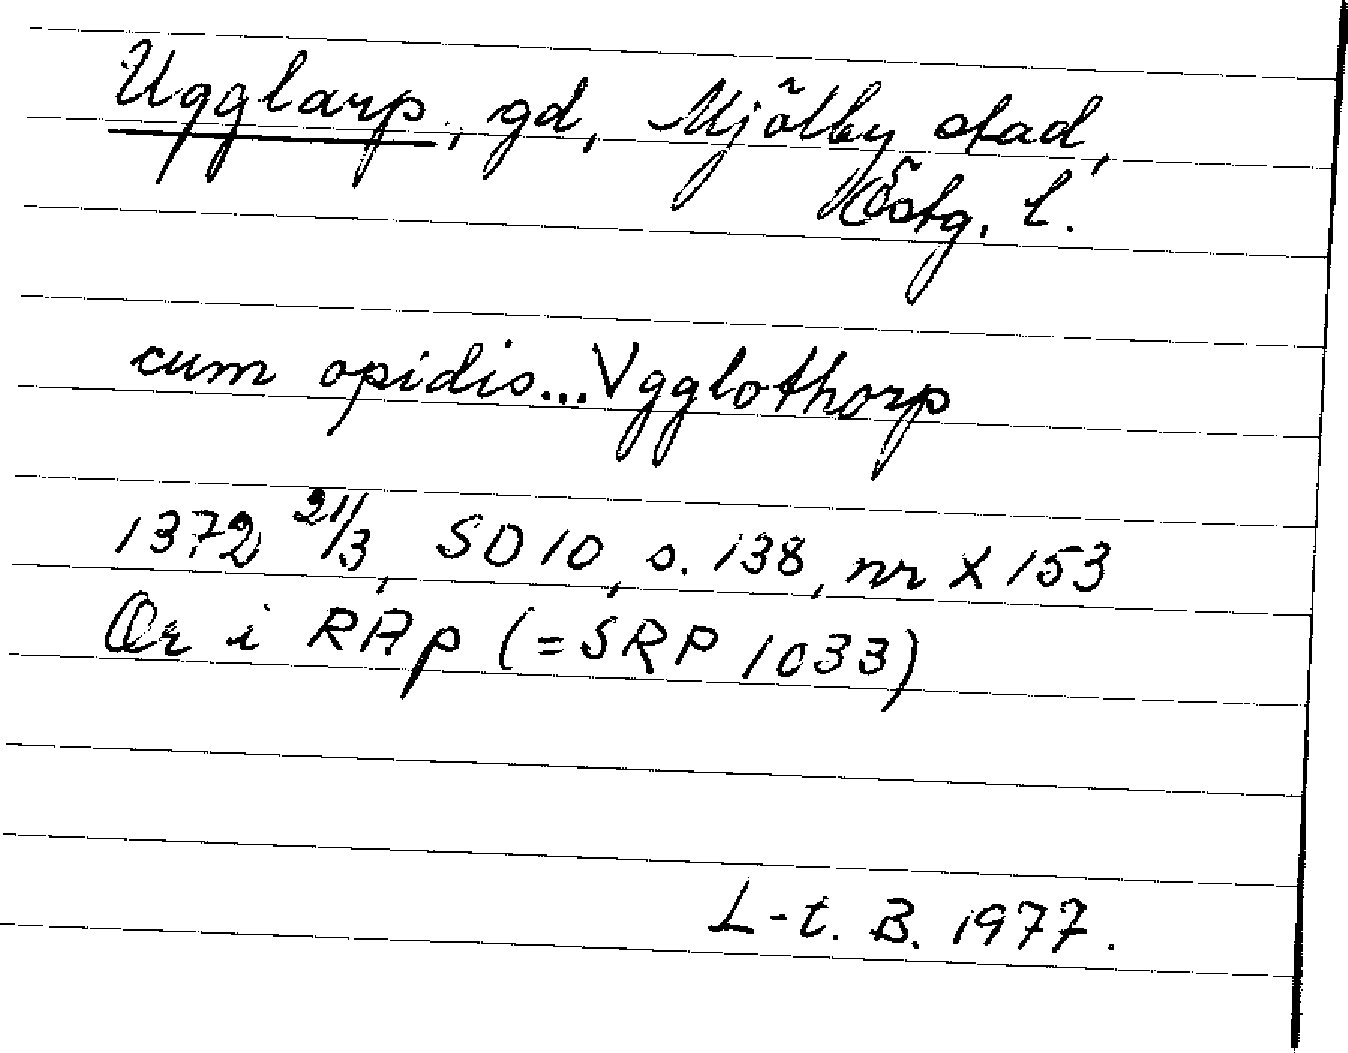 Ugglarp, gd, Mjölby stad,
Östg. l.
cum opidis... Vgglothorp
1372 21/3, SD 10, s. 138, nr X 153
Or i RAp (=SRP 1033)
L-t. B. 1977.